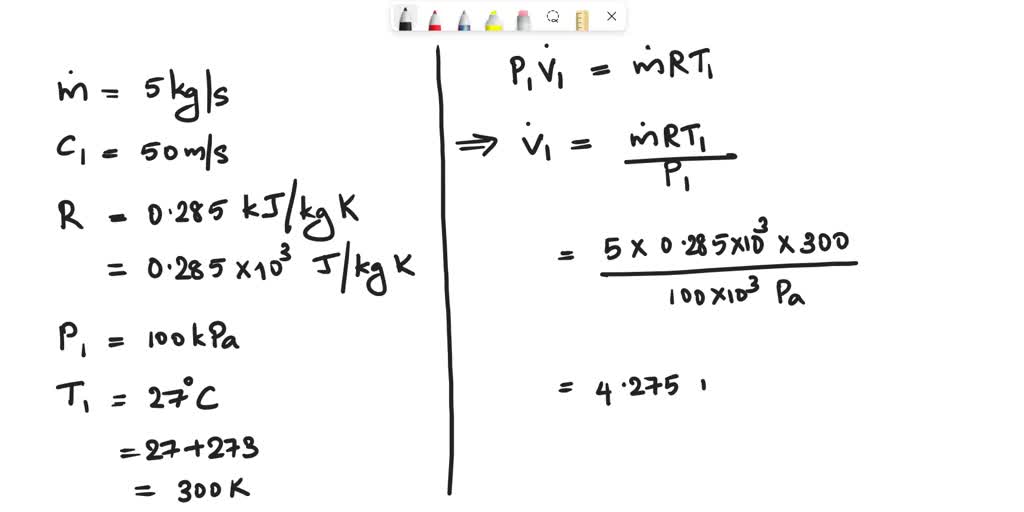 ṁ = 5 kg/s
C₁ = 50 m/s
R = 0.285 kJ/kg K
= 0.285 × 10³ J/kg K
P₁ = 100 kPa
T₁ = 27°C
= 27 + 273
= 300 K
P₁V̇₁ = ṁRT₁
⇒ V̇₁ = ṁRT₁ / P₁
= 5 × 0.285 × 10³ × 300 / 100 × 10³ Pa
= 4.275